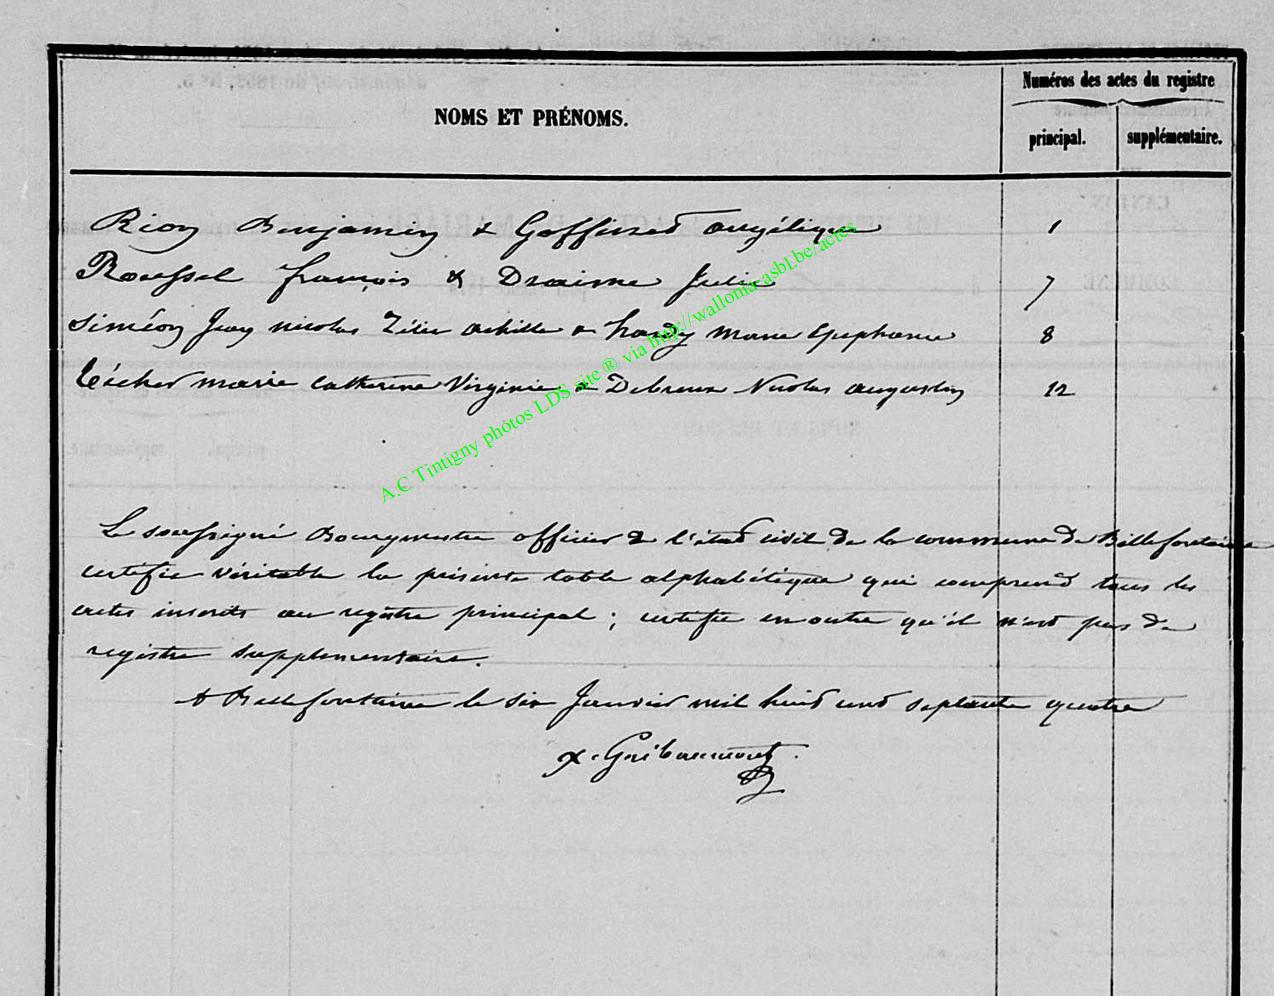 Numéros des actes du registre
NOMS ET PRÉNOMS.
principal. supplémentaire.
Rion Benjamin & Goffinet Angélique 1
Roussel françois & Draime Julie 7
Siméon Jean nicolas Zélie achille & hardy marie Epiphanie 8
técher marie Catherine Virginie & Debreux Nicolas augustin 12
Le soussigné Bourgmestre officier de l'état civil de la commune de Bellefontaine
certifie véritable la présente table alphabétique qui comprend tous les
actes inscrits au registre principal ; certifie en outre qu'il n'est pas de
registre supplémentaire.
A Bellefontaine le six Janvier mil huit cent septante quatre
x. Gribaumont
A.C Tintigny photos LDS site ® via http://wallonia-asbl.be/actes